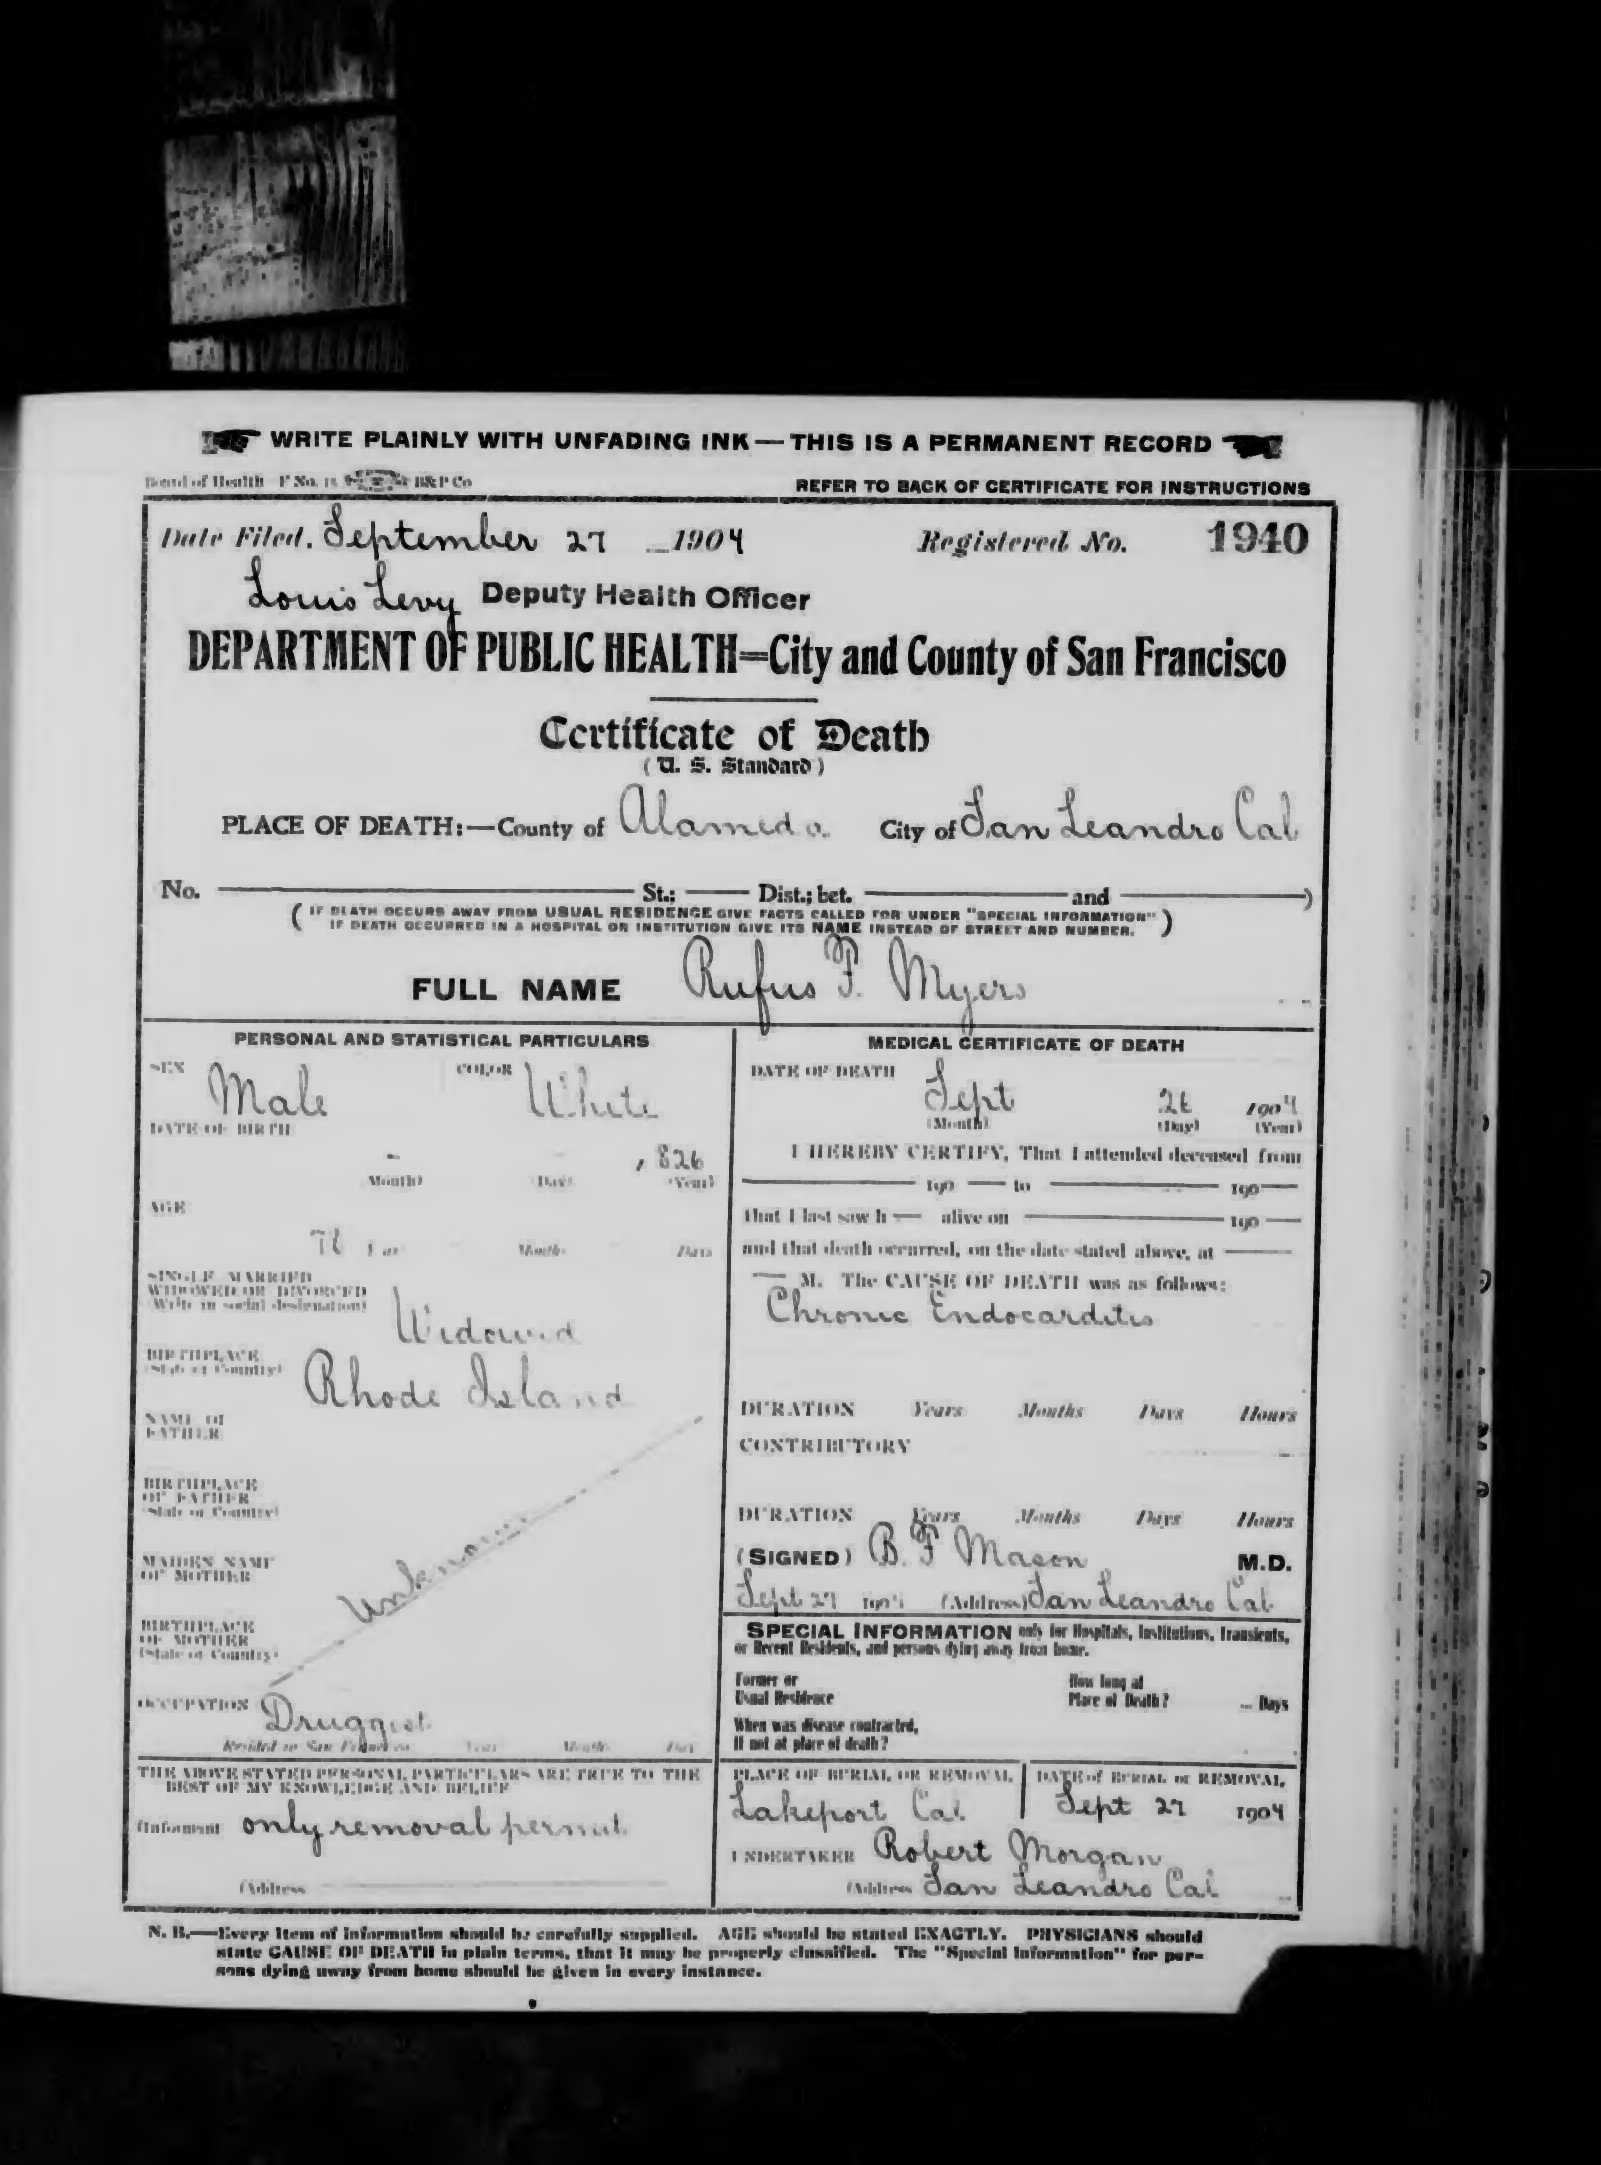 WRITE PLAINLY WITH UNFADING INK — THIS IS A PERMANENT RECORD
Board of Health F No. B&P Co
REFER TO BACK OF CERTIFICATE FOR INSTRUCTIONS
Date Filed. September 27 1904 Registered No. 1940
Louis Levy Deputy Health Officer
DEPARTMENT OF PUBLIC HEALTH=City and County of San Francisco
Certificate of Death
(U. S. Standard)
PLACE OF DEATH:—County of Alameda City of San Leandro Cal
No. St.; Dist.; bet. and )
( IF DEATH OCCURS AWAY FROM USUAL RESIDENCE GIVE FACTS CALLED FOR UNDER "SPECIAL INFORMATION" )
IF DEATH OCCURRED IN A HOSPITAL OR INSTITUTION GIVE ITS NAME INSTEAD OF STREET AND NUMBER.
FULL NAME Rufus F. Myers
PERSONAL AND STATISTICAL PARTICULARS
SEX Male COLOR White
DATE OF BIRTH
1826
(Month) (Day) (Year)
AGE
Months Days
SINGLE MARRIED
WIDOWED OR DIVORCED
(Write in social designation)
Widowed
BIRTHPLACE
(State or Country)
Rhode Island
NAME OF
FATHER
BIRTHPLACE
OF FATHER
(State or Country)
Unknown
MAIDEN NAME
OF MOTHER
BIRTHPLACE
OF MOTHER
(State or Country)
OCCUPATION Druggist
Resided in San Francisco Years Months Days
THE ABOVE STATED PERSONAL PARTICULARS ARE TRUE TO THE
BEST OF MY KNOWLEDGE AND BELIEF
(Informant only removal permit
(Address
MEDICAL CERTIFICATE OF DEATH
DATE OF DEATH
Sept 26 1904
(Month) (Day) (Year)
I HEREBY CERTIFY, That I attended deceased from
190 to 190
that I last saw h alive on 190
and that death occurred, on the date stated above, at
M. The CAUSE OF DEATH was as follows:
Chronic Endocarditis
DURATION Years Months Days Hours
CONTRIBUTORY
DURATION Years Months Days Hours
(SIGNED) B. F Mason M.D.
Sept 27 1904 (Address) San Leandro Cal
SPECIAL INFORMATION only for Hospitals, Institutions, Transients,
or Recent Residents, and persons dying away from home.
Former or
Usual Residence
How long at
Place of Death? Days
When was disease contracted,
If not at place of death?
PLACE OF BURIAL OR REMOVAL
Lakeport Cal.
DATE of BURIAL or REMOVAL
Sept 27 1904
UNDERTAKER Robert Morgan
(Address San Leandro Cal
N. B.—Every item of information should be carefully supplied. AGE should be stated EXACTLY. PHYSICIANS should
state CAUSE OF DEATH in plain terms, that it may be properly classified. The "Special Information" for per-
sons dying away from home should be given in every instance.